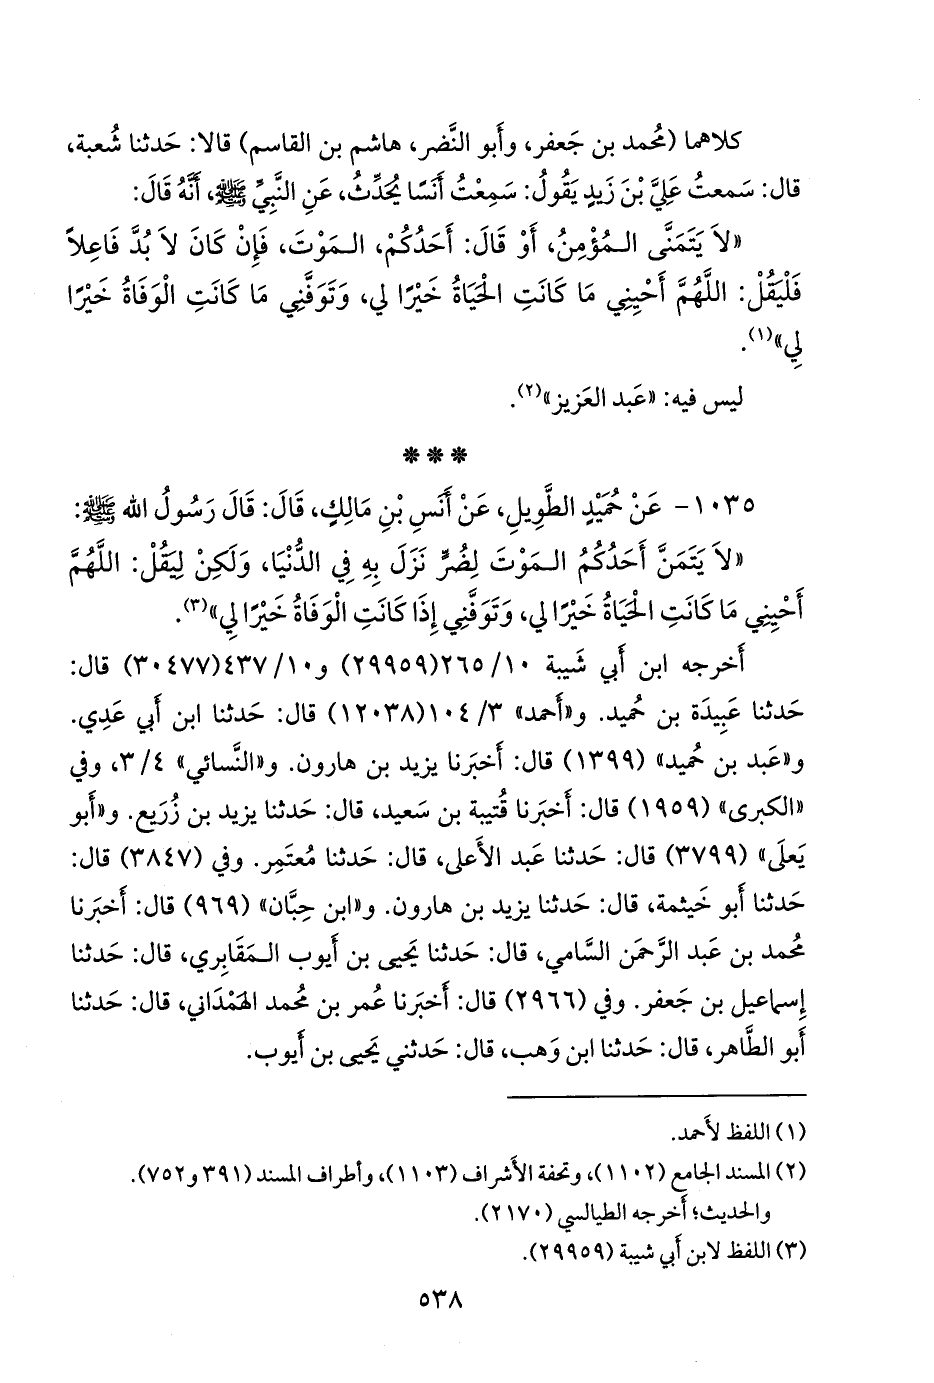 كلاهما (مُحمد بن جَعفر، وأَبو النَّضر، هاشم بن القاسم) قالا: حَدثنا شُعبة،
قال: سَمعتُ عَليَّ بْنَ زَيدٍ يَقُولُ: سَمِعْتُ أَنَسًا يُحَدِّثُ، عَنِ النَّبِيِّ ﷺ، أَنَّهُ قَالَ:
«لاَ يَتَمَنَّى الـمُؤْمِنُ، أَوْ قَالَ: أَحَدُكُمْ، الـمَوْتَ، فَإِنْ كَانَ لاَ بُدَّ فَاعِلاً
فَلْيَقُلْ: اللَّهُمَّ أَحْيِنِي مَا كَانَتِ الْحَيَاةُ خَيْرًا لِي، وَتَوَفَّنِي مَا كَانَتِ الْوَفَاةُ خَيْرًا
لِي»(١).
ليس فيه: «عَبد العَزيز»(٢).
* * *
١٠٣٥- عَنْ حُمَيْدٍ الطَّوِيلِ، عَنْ أَنَسِ بْنِ مَالِكٍ، قَالَ: قَالَ رَسُولُ الله ﷺ:
«لاَ يَتَمَنَّ أَحَدُكُمُ الـمَوْتَ لِضُرٍّ نَزَلَ بِهِ فِي الدُّنْيَا، وَلَكِنْ لِيَقُلْ: اللَّهُمَّ
أَحْيِنِي مَا كَانَتِ الْحَيَاةُ خَيْرًا لِي، وَتَوَفَّنِي إِذَا كَانَتِ الْوَفَاةُ خَيْرًا لِي»(٣).
أَخرجه ابن أَبي شَيبة ١٠/٢٦٥(٢٩٩٥٩) و١٠/٤٣٧(٣٠٤٧٧) قال:
حَدثنا عَبِيدَة بن حُميد. و«أَحمد» ٣/١٠٤(١٢٠٣٨) قال: حَدثنا ابن أَبي عَدِي.
و«عَبد بن حُميد» (١٣٩٩) قال: أَخبَرنا يزيد بن هارون. و«النَّسائي» ٤/٣، وفي
«الكبرى» (١٩٥٩) قال: أَخبَرنا قُتيبة بن سَعيد، قال: حَدثنا يزيد بن زُرَيع. و«أَبو
يَعلَى» (٣٧٩٩) قال: حَدثنا عَبد الأَعلى، قال: حَدثنا مُعتَمِر. وفي (٣٨٤٧) قال:
حَدثنا أَبو خَيثمة، قال: حَدثنا يزيد بن هارون. و«ابن حِبَّان» (٩٦٩) قال: أَخبَرنا
مُحمد بن عَبد الرَّحمَن السَّامي، قال: حَدثنا يَحيى بن أَيوب الـمَقَابِري، قال: حَدثنا
إِسماعيل بن جَعفر. وفي (٢٩٦٦) قال: أَخبَرنا عُمر بن مُحمد الهَمْدَاني، قال: حَدثنا
أَبو الطَّاهر، قال: حَدثنا ابن وَهب، قال: حَدثني يَحيى بن أَيوب.
(١) اللفظ لأَحمد.
(٢) المسند الجامع (١١٠٢)، وتحفة الأَشراف (١١٠٣)، وأطراف المسند (٣٩١ و٧٥٢).
والحديث؛ أَخرجه الطيالسي (٢١٧٠).
(٣) اللفظ لابن أَبي شيبة (٢٩٩٥٩).
٥٣٨